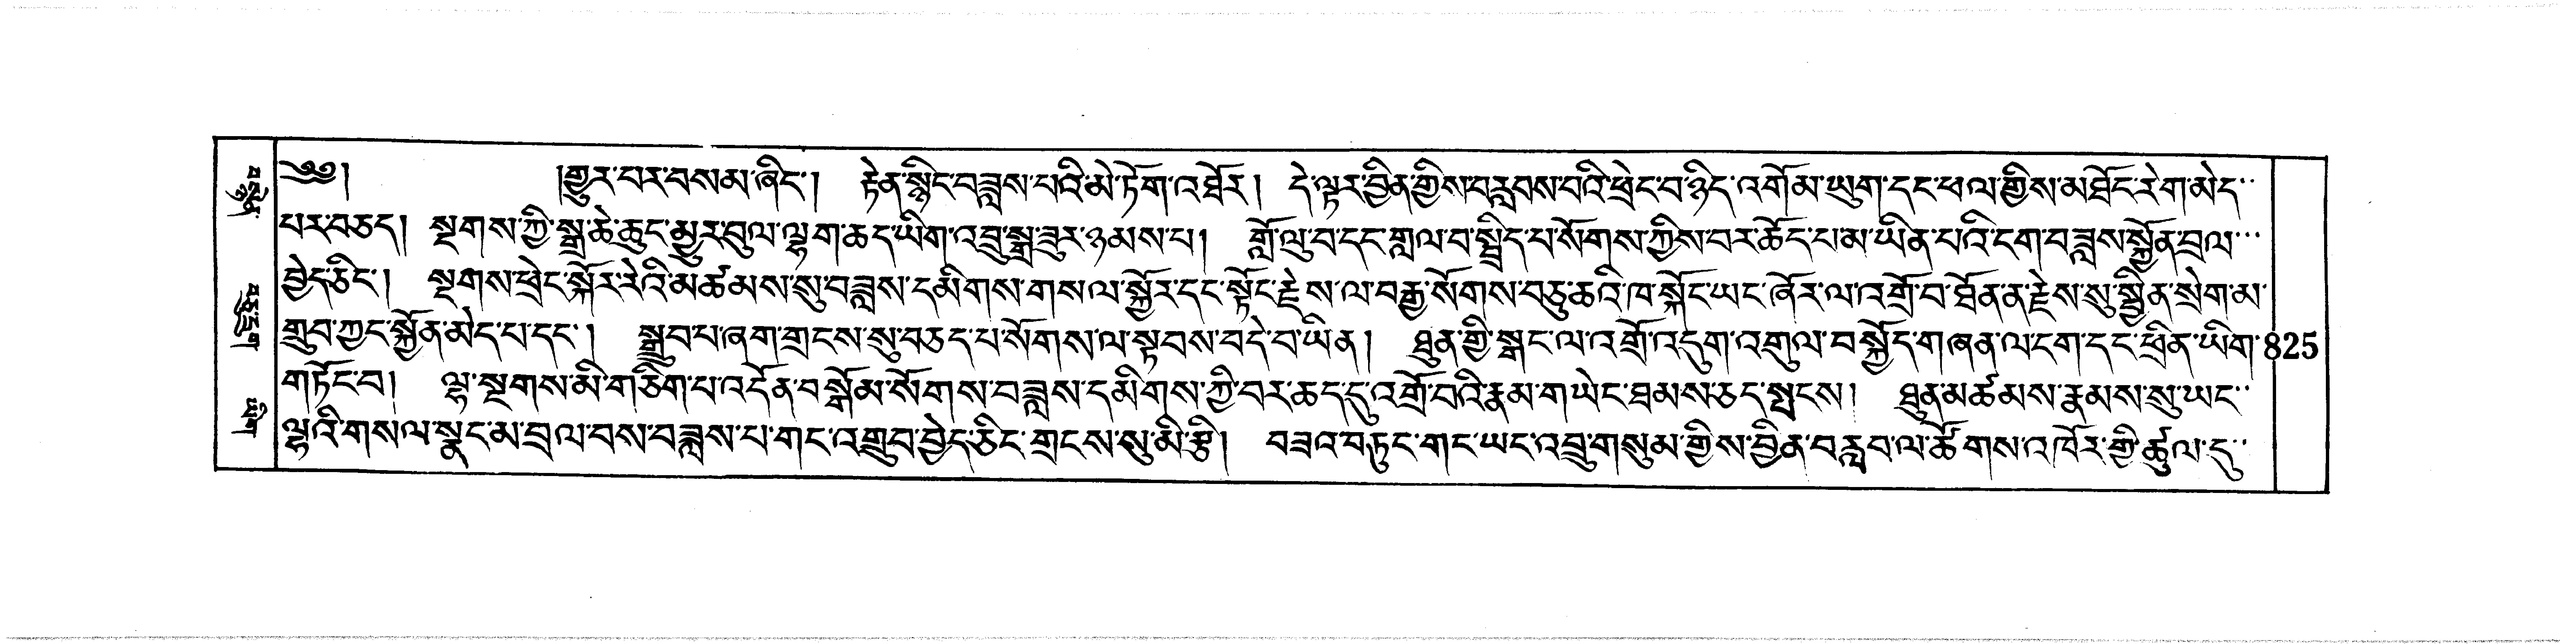 ༄༅། །གྱུར་པར་བསམ་ཞིང་། རྟེན་སྙིང་བཟླས་པའི་མེ་ཏོག་འཐོར། དེ་ལྟར་བྱིན་གྱིས་བརླབས་པའི་ཕྲེང་བ་ཉིད་འགོམ་ཡུག་དང་ཕལ་གྱིས་མཐོང་རེག་མེད་
པར་བཅད། སྔགས་ཀྱི་སྒྲ་ཆེ་ཆུང་མྱུར་བུལ་ལྷག་ཆད་ཡིག་འབྲུ་སྒྲ་ཟུར་ཉམས་པ། གློ་ལུ་བ་དང་གླལ་བ་སྦྲིད་པ་སོགས་ཀྱིས་བར་ཆོད་པ་མ་ཡིན་པའི་ངག་བཟླས་སྐྱོན་བྲལ་
བྱེད་ཅིང་། སྔགས་ཕྲེང་སྐོར་རེའི་མཚམས་སུ་བཟླས་དམིགས་གསལ་སྐྱོར་དང་སྟོང་རྗེས་ལ་བརྒྱ་སོགས་བཅུ་ཆའི་ཁ་སྐོང་ཡང་ཞོར་ལ་འགྲོ་བ་ཐོནན་རྗེས་སུ་སྦྱིན་སྲེག་མ་
གྲུབ་ཀྱང་སྐྱོན་མེད་པ་དང་། སྒྲུབ་པ་ཞག་གྲངས་སུ་བཅད་པ་སོགས་ལ་སྟབས་བདེ་བ་ཡིན། ཐུན་གྱི་སྒང་ལ་འགྲོ་འདུག་འགུལ་བསྐྱོད་གཞན་ལ་ངག་དང་ཕྲིན་ཡིག་825
གཏོང་བ། ལྷ་སྔགས་མི་གཅིག་པ་འདོན་བསྒོམ་སོགས་བཟླས་དམིགས་ཀྱི་བར་ཆད་དུ་འགྲོ་བའི་རྣམ་གཡེང་ཐམས་ཅད་སྤངས། ཐུན་མཚམས་རྣམས་སུ་ཡང་
ལྷའི་གསལ་སྣང་མ་བྲལ་བས་བཟླས་པ་གང་འགྲུབ་བྱེད་ཅིང་གྲངས་སུ་མི་རྩི། བཟའ་བཏུང་གང་ཡང་འབྲུ་གསུམ་གྱིས་བྱིན་བརླབ་ལ་ཚོགས་འཁོར་གྱི་ཚུལ་དུ་